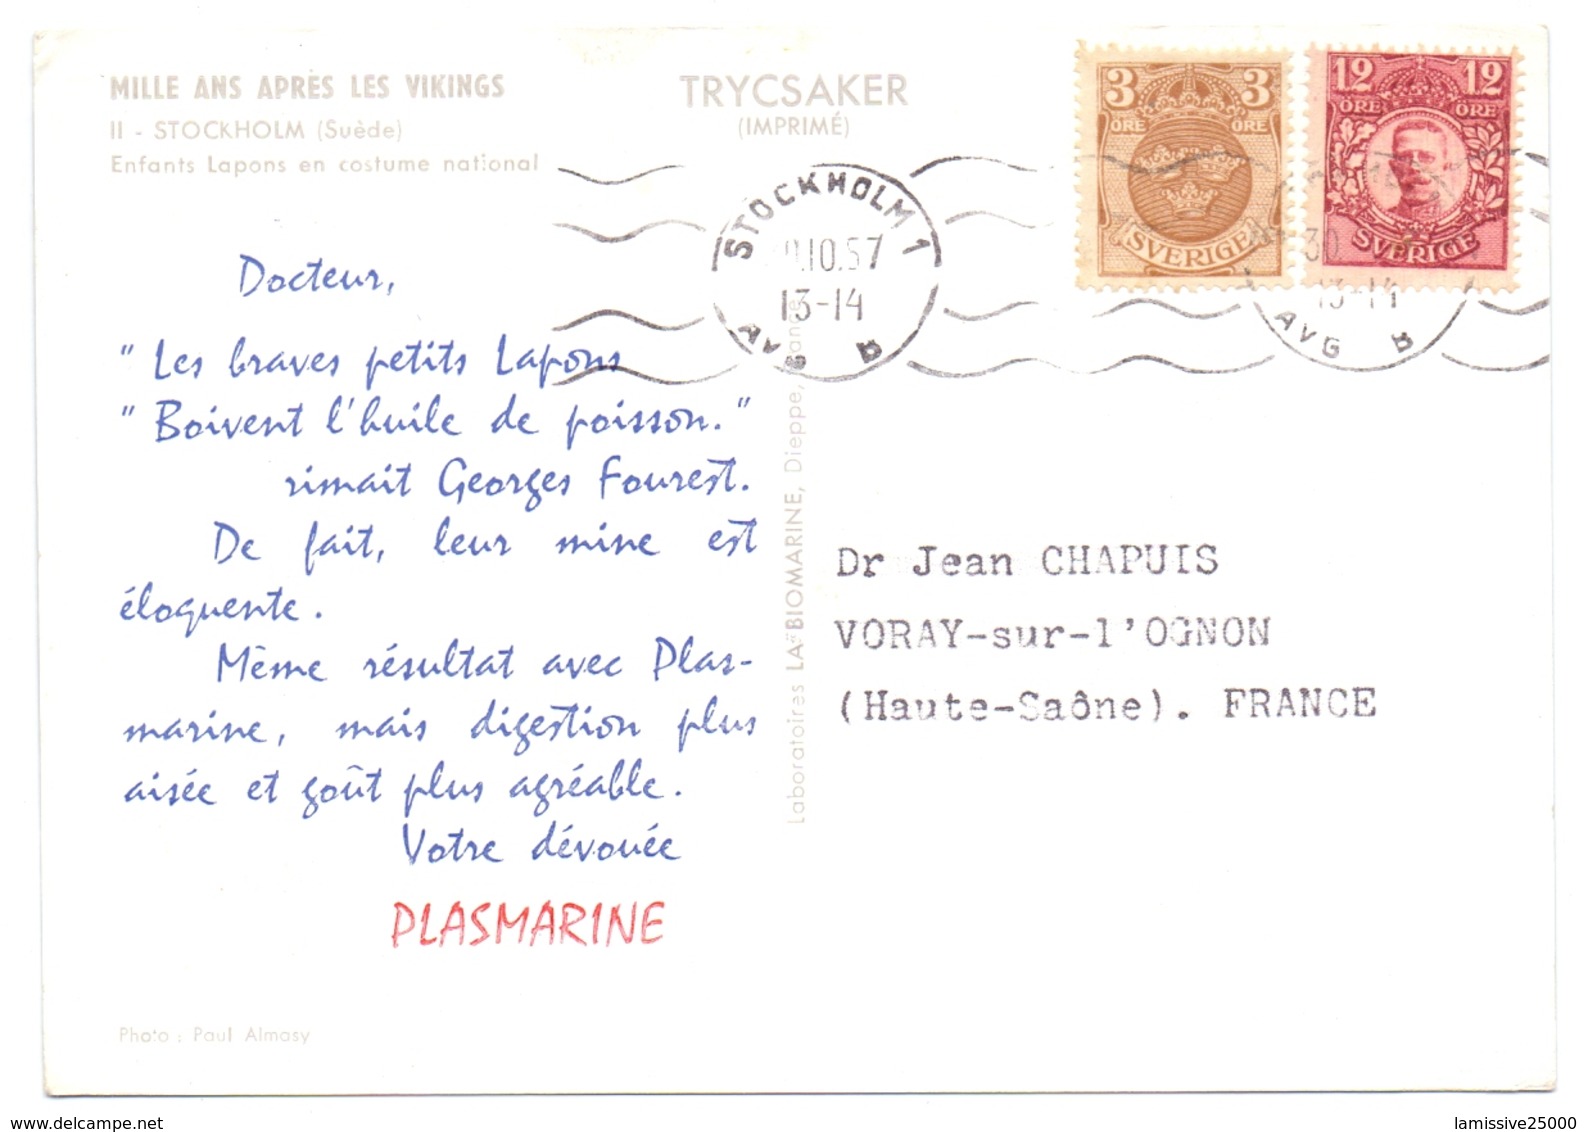 MILLE ANS APRÈS LES VIKINGS
II - STOCKHOLM (Suède)
Enfants Lapons en costume national
TRYCSAKER
(IMPRIMÉ)
3 3
ÖRE ÖRE
SVERIGE
12 12
ÖRE ÖRE
SVERIGE
STOCKHOLM 1
.10.57
13-14
AVG
30
13-14
AVG
Docteur,
" Les braves petits Lapons
" Boivent l'huile de poisson."
rimait Georges Fourest.
De fait, leur mine est
éloquente.
Même résultat avec Plas-
marine, mais digestion plus
aisée et goût plus agréable.
Votre dévouée
PLASMARINE
Photo : Paul Almasy
Laboratoires LA BIOMARINE, Dieppe, France
Dr Jean CHAPUIS
VORAY-sur-l'OGNON
(Haute-Saône). FRANCE
lamissive25000